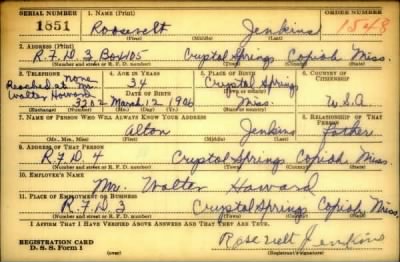 SERIAL NUMBER 1. NAME (Print) ORDER NUMBER
1851 Roosevelt Jenkins 1548
(First) (Middle) (Last)
2. ADDRESS (Print)
R.F.D. 3 Box 105 Crystal Springs Copiah Miss.
(Number and street or R. F. D. number) (Town) (County) (State)
3. TELEPHONE 4. AGE IN YEARS 5. PLACE OF BIRTH 6. COUNTRY OF CITIZENSHIP
none
Reached at Mr. 34 Crystal Springs
Walter Howard DATE OF BIRTH (Town or county)
3202 March 12 1906 Miss. U.S.A
(Exchange) (Number) (Mo.) (Day) (Yr.) (State or country)
7. NAME OF PERSON WHO WILL ALWAYS KNOW YOUR ADDRESS 8. RELATIONSHIP OF THAT PERSON
Alton Jenkins Father
(Mr., Mrs., Miss) (First) (Middle) (Last)
9. ADDRESS OF THAT PERSON
R.F.D. 4 Crystal Springs Copiah Miss.
(Number and street or R. F. D. number) (Town) (County) (State)
10. EMPLOYER'S NAME
Mr. Walter Howard
11. PLACE OF EMPLOYMENT OR BUSINESS
R.F.D. 3 Crystal Springs Copiah Miss.
(Number and street or R. F. D. number) (Town) (County) (State)
I AFFIRM THAT I HAVE VERIFIED ABOVE ANSWERS AND THAT THEY ARE TRUE.
REGISTRATION CARD Roosevelt Jenkins
D. S. S. Form 1 (over) (Registrant's signature)